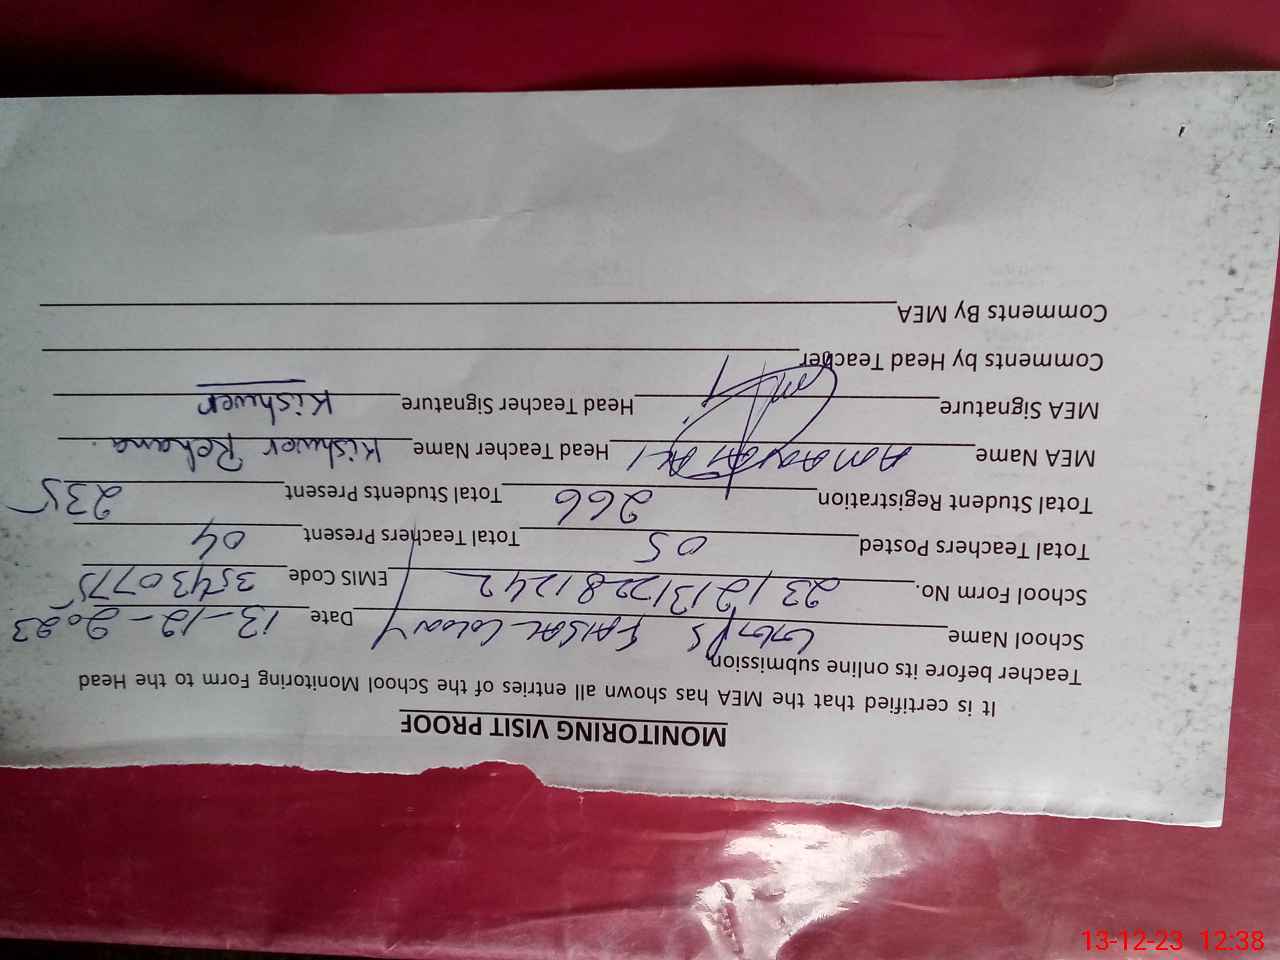 MONITORING VISIT PROOF
It is certified that the MEA has shown all entries of the School Monitoring Form to the Head
Teacher before its online submission
School Name FAISAL Colony Date 13-12-2023
School Form No. 23/12/13/1228/1242 EMIS Code 35430775
Total Teachers Posted 05 Total Teachers Present 04
Total Student Registration 266 Total Students Present 235
MEA Name ALI Head Teacher Name Kishwer Rehana
MEA Signature Head Teacher Signature Kishwer
Comments by Head Teacher
Comments By MEA
13-12-23 12:38